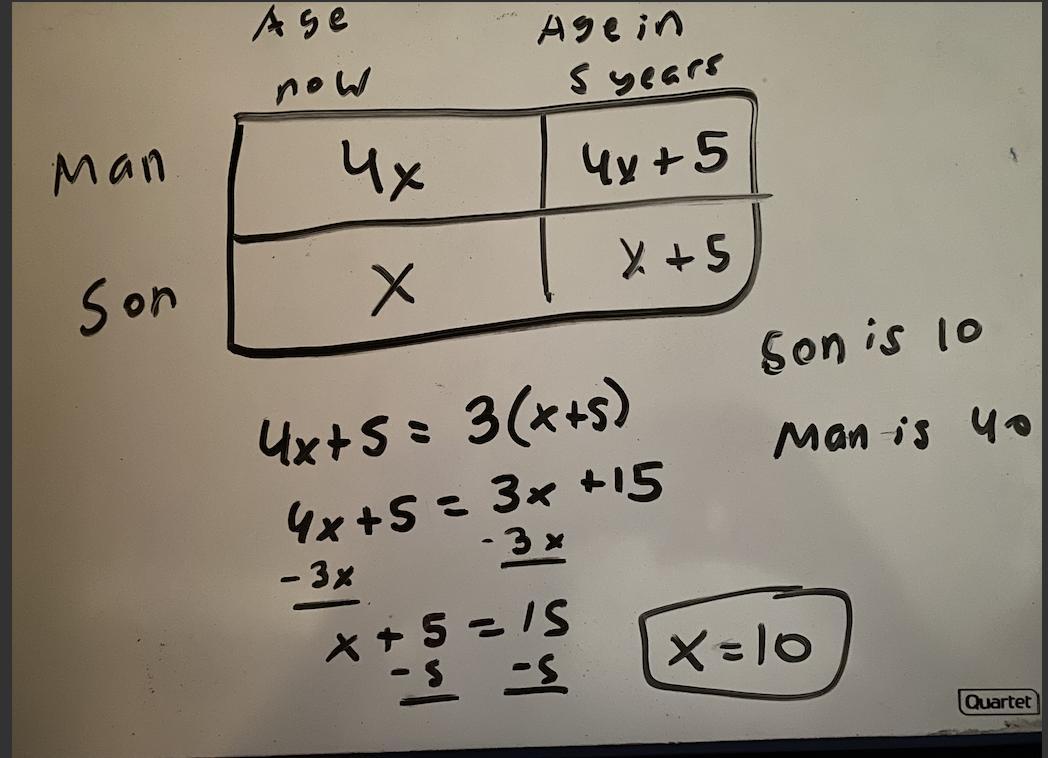 Age
now
Age in
5 years
Man
4x
4x + 5
Son
x
x + 5
Son is 10
Man is 40
4x + 5 = 3(x+5)
4x + 5 = 3x + 15
-3x
-3x
x + 5 = 15
-5 -5
x = 10
Quartet